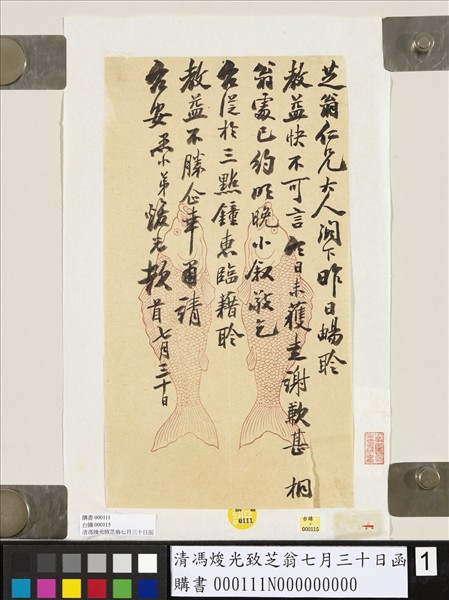 芝翁仁兄大人閣下昨日暢聆
教益快不可言今日未獲走謝歉甚 桐
翁處已約明晚小叙敬乞
台從於三點鐘惠臨藉聆
教益不勝企幸肅請
台安 愚小弟焌光頓首七月三十日
購書 000111
台購 000115
清馮焌光致芝翁七月三十日函
0111
台購
000115
清馮焌光致芝翁七月三十日函
購書 000111N000000000
1